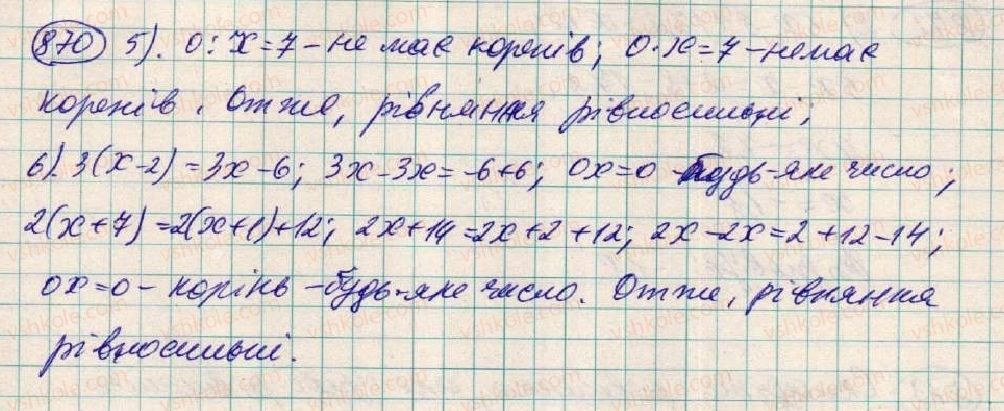 870 5). 0 : x = 7 – не має коренів; 0 · x = 7 – немає
коренів. Отже, рівняння рівносильні;
6). 3(x-2) = 3x-6; 3x-3x = -6+6; 0x=0 – будь-яке число;
2(x+7) = 2(x+1)+12; 2x+14 = 2x+2+12; 2x-2x=2+12-14;
0x=0 – корінь – будь-яке число. Отже, рівняння
рівносильні.